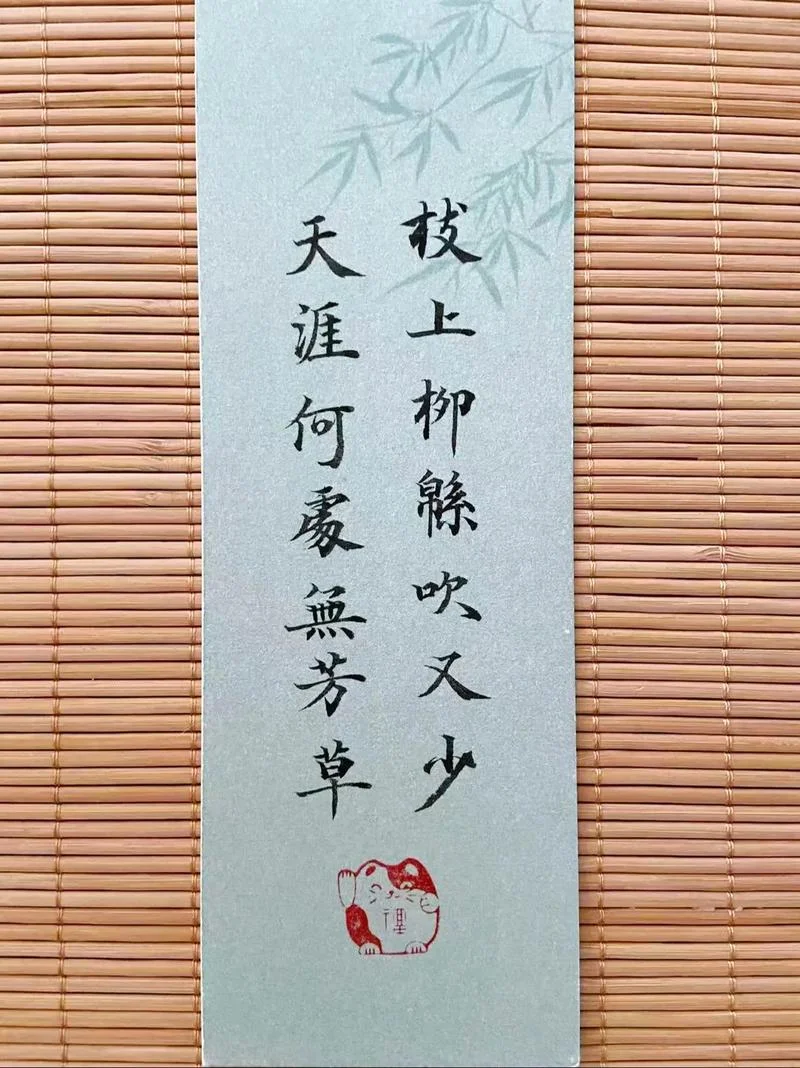 枝上柳緜吹又少
天涯何處無芳草